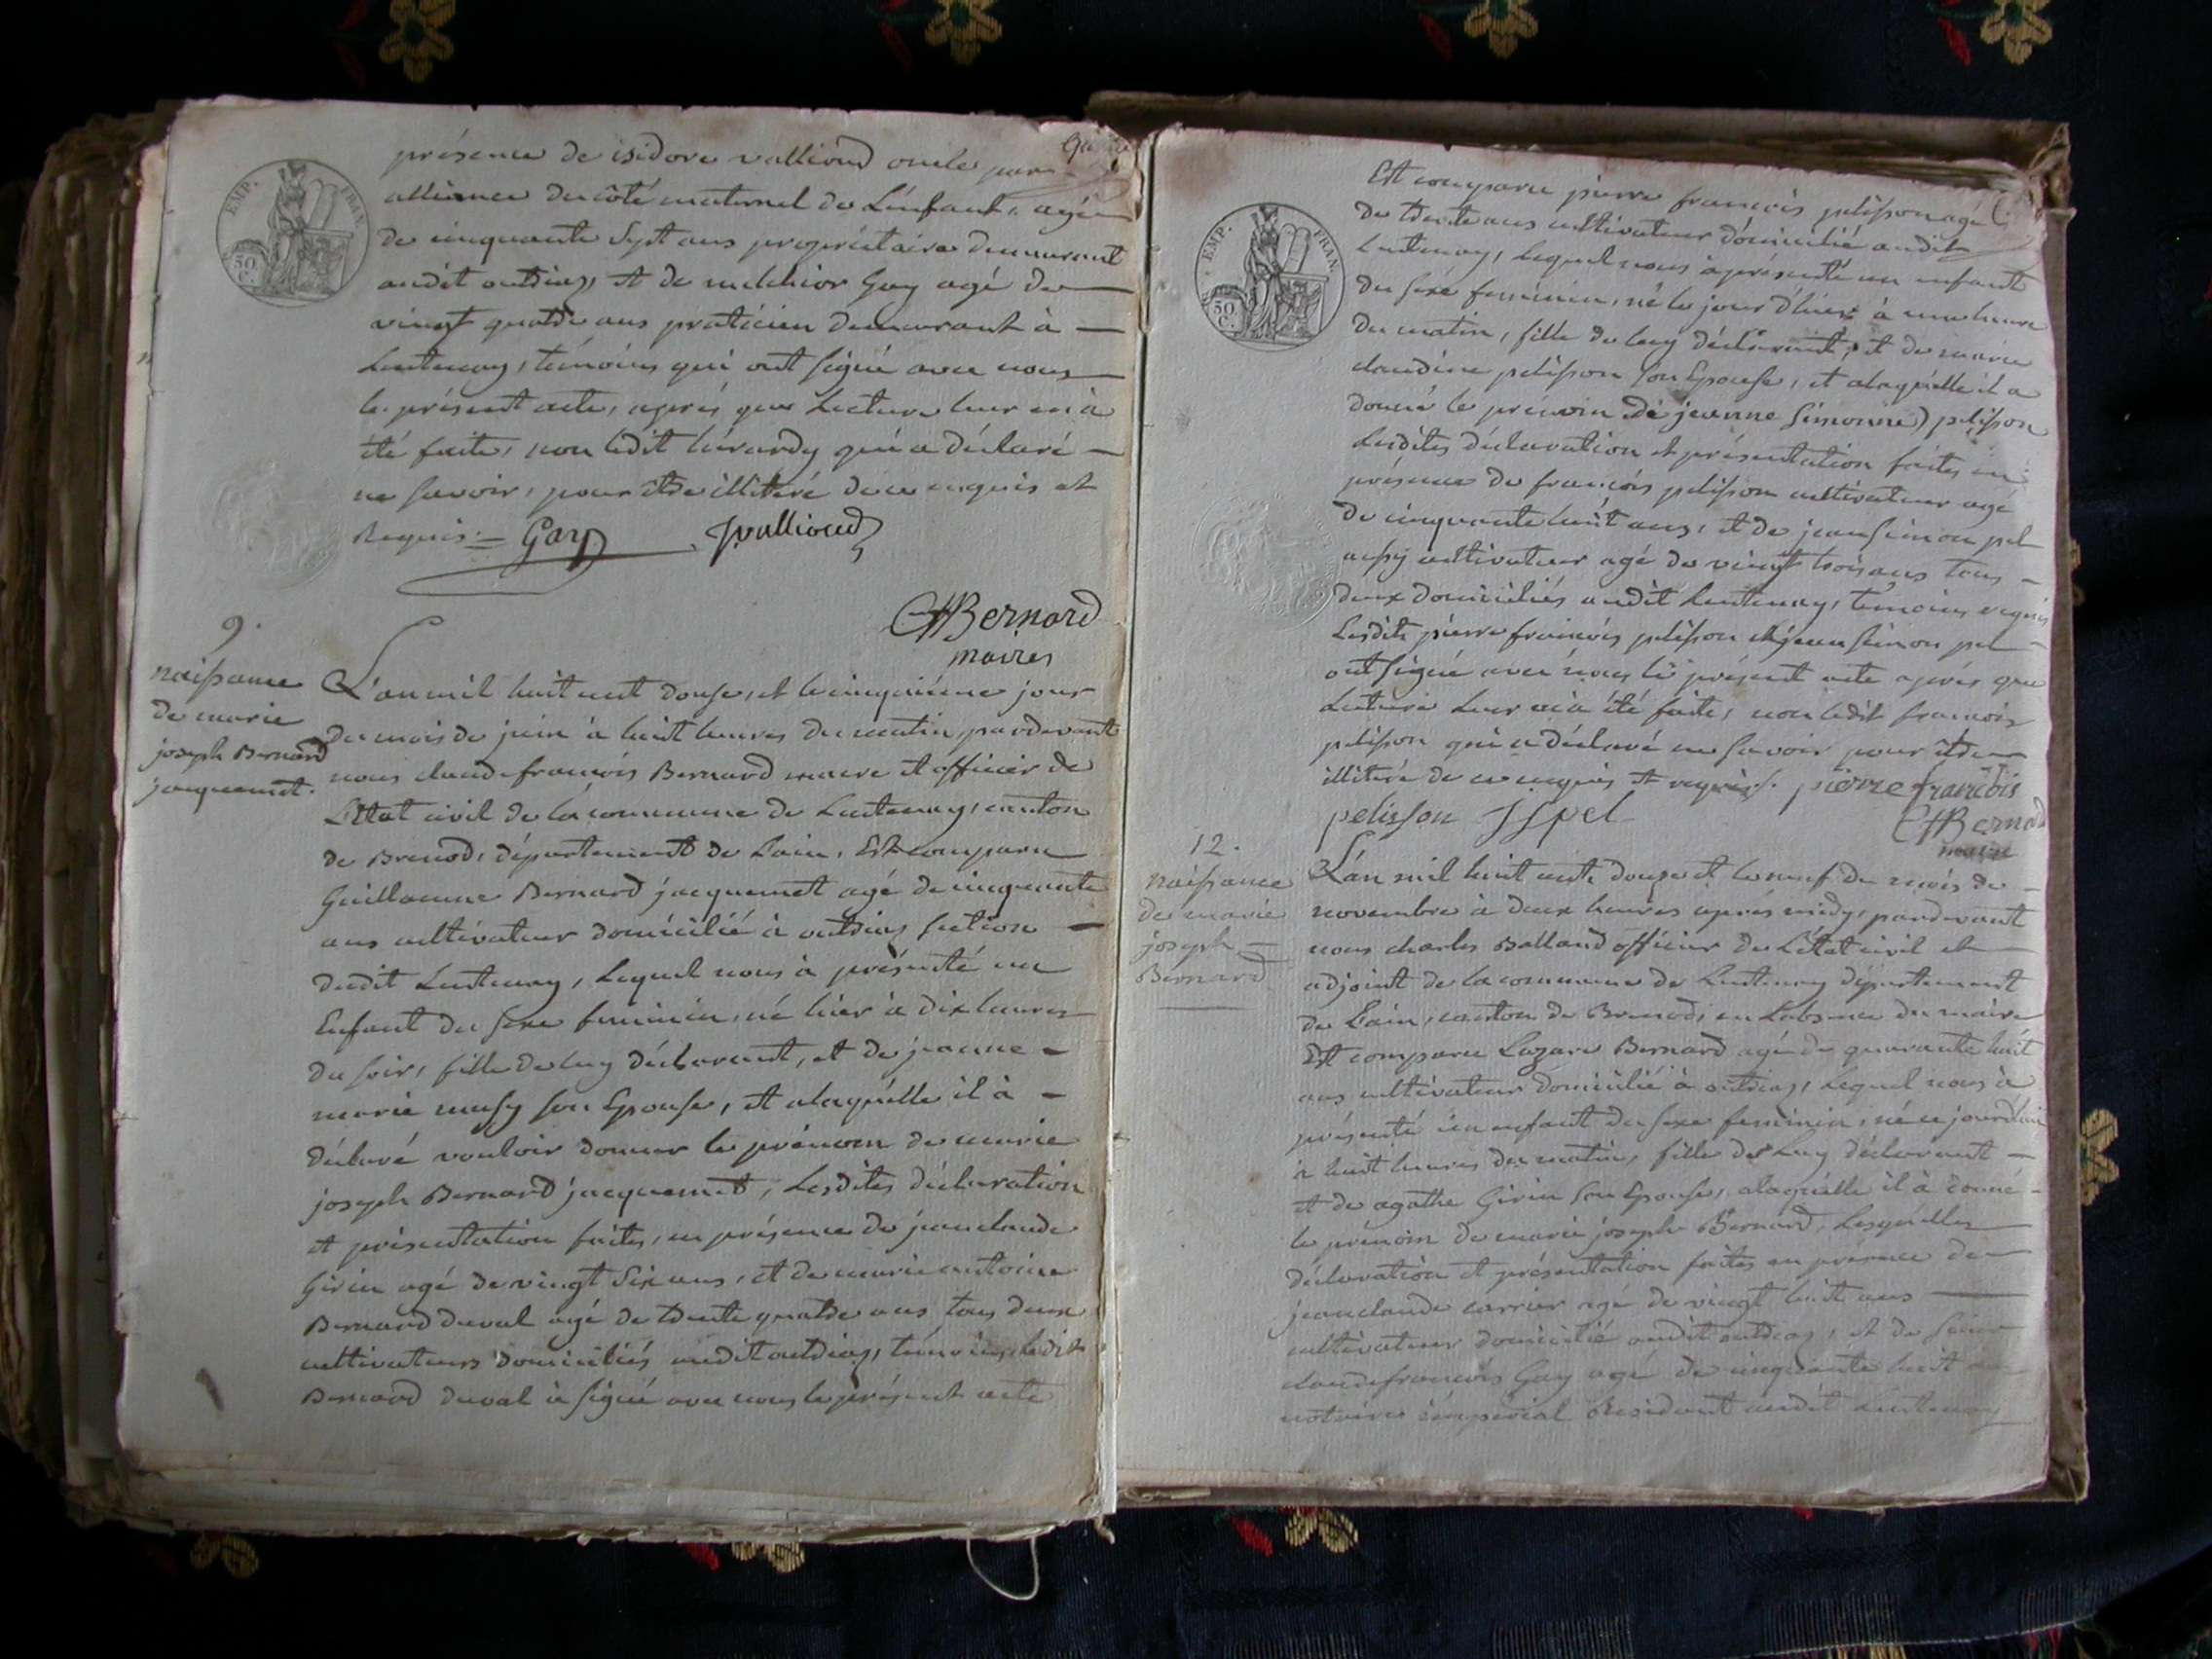 EMP. FRAN.
50 C.
présence de isidore valliond oncle par
alliance du côté maternel de L'enfant, agé
de cinquante Sept ans propriétaire demeurant
audit outriaz, et de melchior Gay agé de
vingt quatre ans praticien demeurant à
Lantenay, témoins qui ont signé avec nous
le présent acte, après que Lecture leur en à
été faite, non ledit hérardy qui a déclaré
ne savoir, pour être illitéré de ce enquis et
Requis. Gay Jvalliond
CfBernard
maires
9.
naissance
de marie
joseph Bernard
jacquemet.
L'an mil huit cent douse, et le cinquième jour
du mois de juin à huit heures du matin, pardevant
nous claude françois Bernard maire et officier de
L'Etat civil de la commune de Lantenay, canton
de Brenod, département de Lain, Est comparu
Guillaume Bernard jacquemet agé de cinquante
ans cultivateur domicilié à outriaz section
dudit Lantenay, Lequel nous à présenté un
Enfant du sexe feminin, né hier à dix heures
du soir, fille de luy déclarant, et de jeanne
marie son Epouse, et alaquelle il à
déclaré vouloir donner le prénom de marie
joseph Bernard jacquemet, Lesdites déclaration
et présentation faites, en présence de jean claude
Girin agé de vingt Six ans, et de marie antoine
Bernard duval agé de trente quatre ans tous deux
cultivateurs domiciliés audit outriaz, témoins, ledit
Bernard duval à signé avec nous le présent acte
EMP. FRAN.
50 C.
Est comparu pierre francois pelisson agé
de trente ans cultivateur domicilié audit
Lantenay, Lequel nous à présenté un enfant
du sexe feminin, né le jour d'hier à une heure
du matin, fille de luy déclarant, et de marie
claudine pelisson son Epouse, et alaquelle il a
donné le prénom de jeanne Simonne) pelisson
Lesdites déclaration et présentation faites en
présence de françois pelisson cultivateur agé
de cinquante huit ans, et de jean simon pel
aussy cultivateur agé de vingt trois ans tous
deux domiciliés audit Lantenay, témoins requis
Lesdits pierre françois pelisson et jean simon pel
ont signé avec nous le présent acte après que
Lecture leur en à été faite, non ledit francois
pelisson qui a déclaré ne savoir pour être
illitéré de ce enquis et requis. pierre francois
pelisson JSpel CfBernard
maire
12.
naissance
de marie
joseph
Bernard
L'an mil huit cent douze et le neuf du mois de
novembre à deux heures après midy, pardevant
nous charles Balland officier de L'état civil et
adjoint de la commune de Lantenay département
de Lain, canton de Brenod, en L'absence du maire
Est comparu Lazare Bernard agé de quarante huit
ans cultivateur domicilié à outriaz, Lequel nous à
présenté un enfant du sexe feminin, né ce jourdhui
à huit heures du matin, fille de Luy déclarant
et de agathe Girin son Epouse, alaquelle il à donné
le prénom de marie joseph Bernard, Lesquelles
déclaration et présentation faites en présence de
jean claude carrier agé de vingt huit ans
cultivateur domicilié audit outriaz, et de sieur
claude francois Gay agé de cinquante huit ans
notaire impérial Résidant audit Lantenay